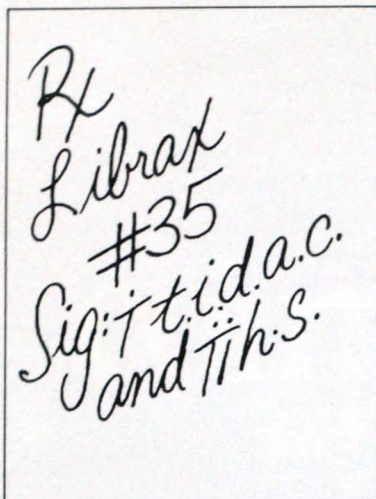 Rx
Librax
#35
Sig: i t.i.d. a.c.
and ii h.s.